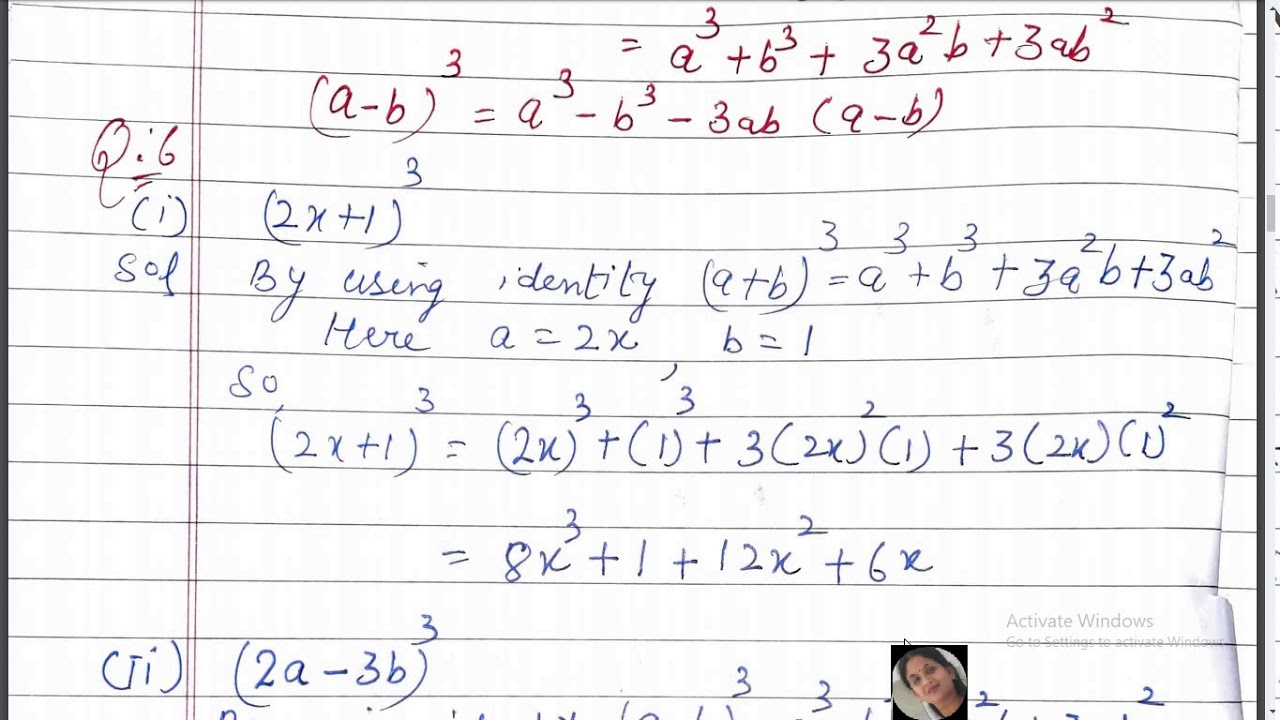 = a³ + b³ + 3a²b + 3ab²
(a-b)³ = a³ - b³ - 3ab (a-b)
Q:6
(i) (2x+1)³
Sol By using identity (a+b)³ = a³ + b³ + 3a²b + 3ab²
Here a = 2x , b = 1
So,
(2x+1)³ = (2x)³ + (1)³ + 3(2x)²(1) + 3(2x)(1)²
= 8x³ + 1 + 12x² + 6x
(ii) (2a - 3b)³
Activate Windows
Go to Settings to activate Windows.